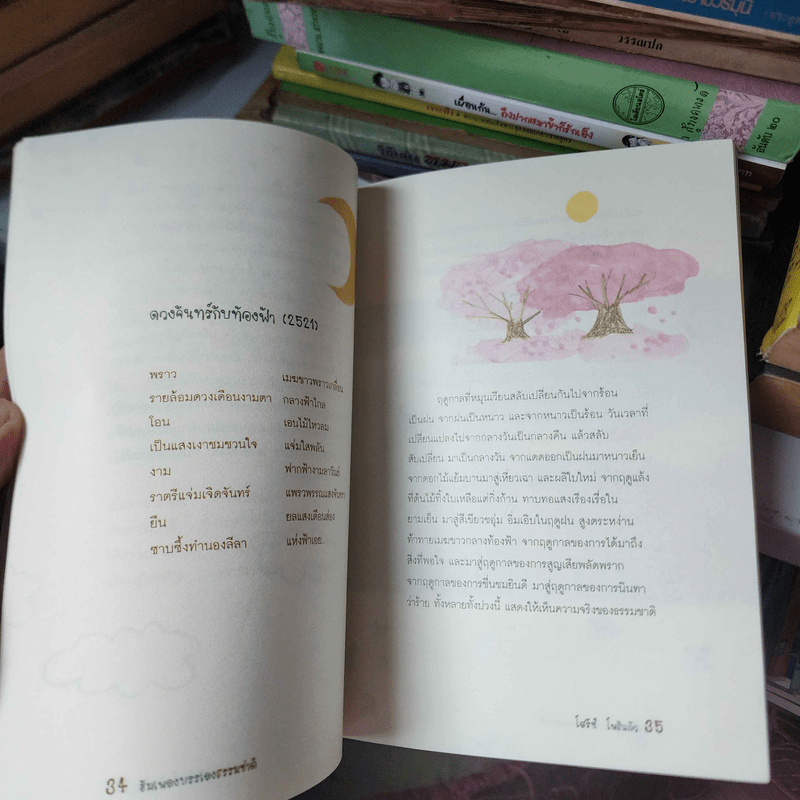 วรรณปก
เมื่อเก๊น... ถึงปากหมาข้าก็รักเอ็ง
อันดับ ๒๐
ดวงจันทร์กับท้องฟ้า (2521)
พราว เมฆขาวพราวเกลื่อน
รายล้อมดวงเดือนงามตา กลางฟ้าไกล
โอน เอนไม้ไหวลม
เป็นแสงเงาชมชวนใจ แจ่มใสพลัน
งาม ฟากฟ้างามลาวัณย์
ราตรีแจ่มเจิดจันทร์ แพรวพรรณแสงจันทรา
ยืน ยลแสงเดือนส่อง
ซาบซึ้งทำนองลีลา แห่งฟ้าเอย..
34 ฮัมเพลงบรรเลงธรรมชาติ
ฤดูกาลที่หมุนเวียนสลับเปลี่ยนกันไปจากร้อน
เป็นฝน จากฝนเป็นหนาว และจากหนาวเป็นร้อน วันเวลาที่
เปลี่ยนแปลงไปจากกลางวันเป็นกลางคืน แล้วสลับ
สับเปลี่ยน มาเป็นกลางวัน จากแดดออกเป็นฝนมาหนาวเย็น
จากดอกไม้แย้มบานมาสู่เหี่ยวเฉา และผลิใบใหม่ จากฤดูแล้ง
ที่ต้นไม้ทิ้งใบเหลือแต่กิ่งก้าน ทาบทอแสงเรืองเรื่อใน
ยามเย็น มาสู่สีเขียวชอุ่ม อิ่มเอิบในฤดูฝน สูงตระหง่าน
ท้าทายเมฆขาวกลางท้องฟ้า จากฤดูกาลของการได้มาถึง
สิ่งที่พอใจ และมาสู่ฤดูกาลของการสูญเสียพลัดพราก
จากฤดูกาลของการชื่นชมยินดี มาสู่ฤดูกาลของการนินทา
ว่าร้าย ทั้งหลายทั้งปวงนี้ แสดงให้เห็นความจริงของธรรมชาติ
โชรีซ์ โพธิแก้ว 35